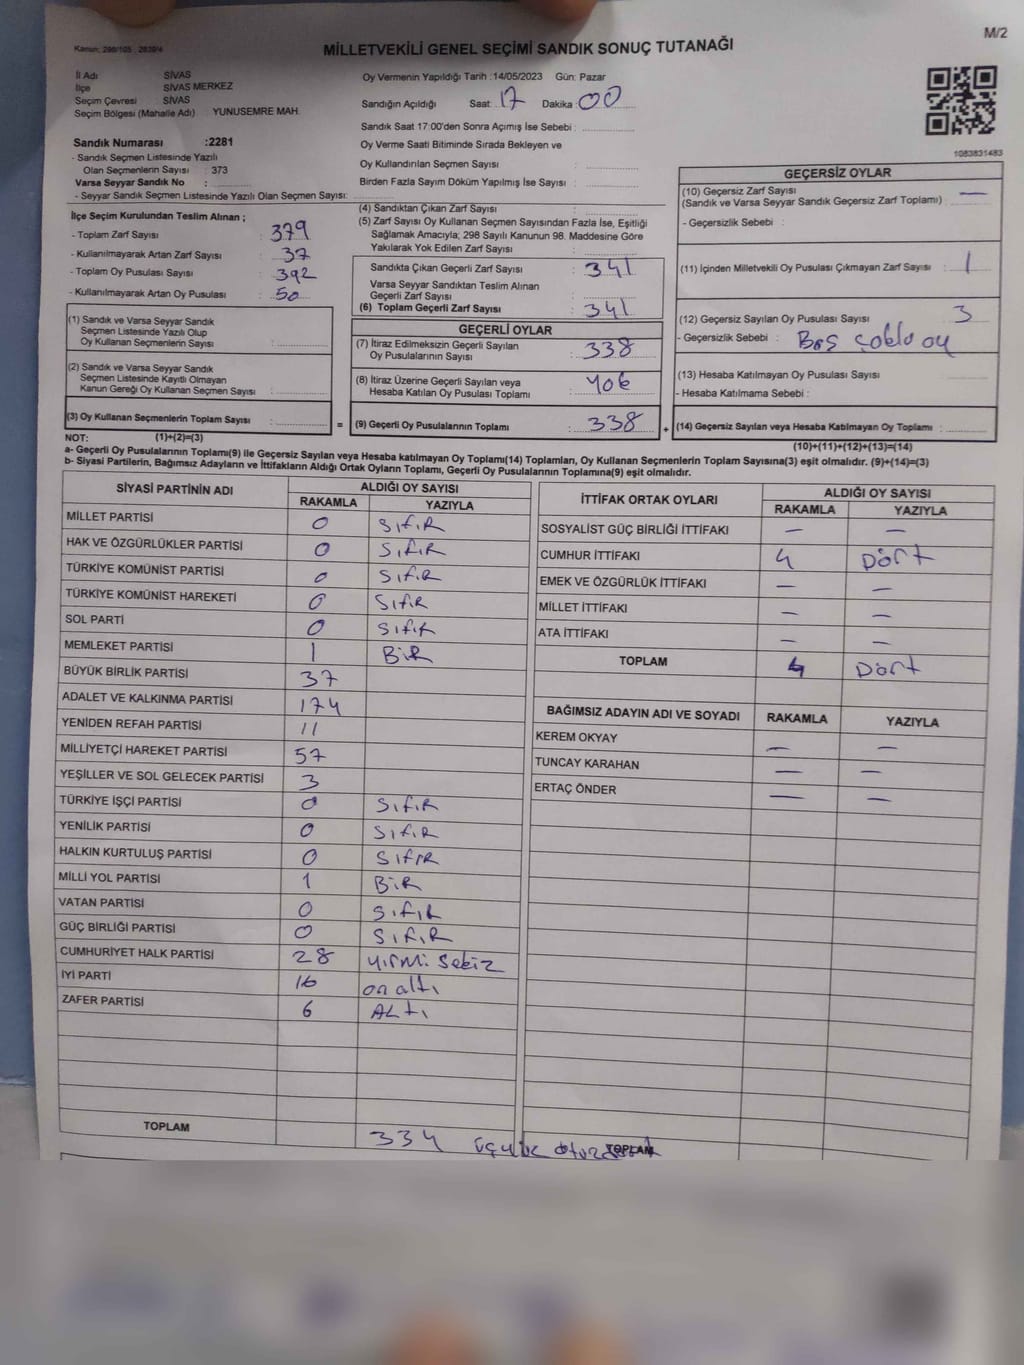 M/2
Kanun: 298/105 , 2839/4
MİLLETVEKİLİ GENEL SEÇİMİ SANDIK SONUÇ TUTANAĞI
İl Adı SİVAS
İlçe SİVAS MERKEZ
Seçim Çevresi SİVAS
Seçim Bölgesi (Mahalle Adı) YUNUSEMRE MAH.
Sandık Numarası :2281
- Sandık Seçmen Listesinde Yazılı
Olan Seçmenlerin Sayısı : 373
Varsa Seyyar Sandık No :
- Seyyar Sandık Seçmen Listesinde Yazılı Olan Seçmen Sayısı:
Oy Vermenin Yapıldığı Tarih :14/05/2023 Gün: Pazar
Sandığın Açıldığı Saat: 17 Dakika : 00
Sandık Saat 17:00'den Sonra Açımış İse Sebebi :
Oy Verme Saati Bitiminde Sırada Bekleyen ve
Oy Kullandırılan Seçmen Sayısı :
Birden Fazla Sayım Döküm Yapılmış İse Sayısı :
1083831483
İlçe Seçim Kurulundan Teslim Alınan ;
- Toplam Zarf Sayısı : 379
- Kullanılmayarak Artan Zarf Sayısı : 37
- Toplam Oy Pusulası Sayısı : 392
- Kullanılmayarak Artan Oy Pusulası : 50
(1) Sandık ve Varsa Seyyar Sandık
Seçmen Listesinde Yazılı Olup
Oy Kullanan Seçmenlerin Sayısı :
(2) Sandık ve Varsa Seyyar Sandık
Seçmen Listesinde Kayıtlı Olmayan
Kanun Gereği Oy Kullanan Seçmen Sayısı :
(3) Oy Kullanan Seçmenlerin Toplam Sayısı : =
(4) Sandıktan Çıkan Zarf Sayısı :
(5) Zarf Sayısı Oy Kullanan Seçmen Sayısından Fazla İse, Eşitliği
Sağlamak Amacıyla; 298 Sayılı Kanunun 98. Maddesine Göre
Yakılarak Yok Edilen Zarf Sayısı :
Sandıkta Çıkan Geçerli Zarf Sayısı : 341
Varsa Seyyar Sandıktan Teslim Alınan
Geçerli Zarf Sayısı :
(6) Toplam Geçerli Zarf Sayısı : 341
GEÇERLİ OYLAR
(7) İtiraz Edilmeksizin Geçerli Sayılan
Oy Pusulalarının Sayısı : 338
(8) İtiraz Üzerine Geçerli Sayılan veya
Hesaba Katılan Oy Pusulası Toplamı :
(9) Geçerli Oy Pusulalarının Toplamı : 338 +
GEÇERSİZ OYLAR
(10) Geçersiz Zarf Sayısı —
(Sandık ve Varsa Seyyar Sandık Geçersiz Zarf Toplamı) :
- Geçersizlik Sebebi :
(11) İçinden Milletvekili Oy Pusulası Çıkmayan Zarf Sayısı : 1
(12) Geçersiz Sayılan Oy Pusulası Sayısı : 3
- Geçersizlik Sebebi : Boş çoklu oy
(13) Hesaba Katılmayan Oy Pusulası Sayısı :
- Hesaba Katılmama Sebebi :
(14) Geçersiz Sayılan veya Hesaba Katılmayan Oy Toplamı :
NOT: (1)+(2)=(3) (10)+(11)+(12)+(13)=(14)
a- Geçerli Oy Pusulalarının Toplamı(9) ile Geçersiz Sayılan veya Hesaba katılmayan Oy Toplamı(14) Toplamları, Oy Kullanan Seçmenlerin Toplam Sayısına(3) eşit olmalıdır. (9)+(14)=(3)
b- Siyasi Partilerin, Bağımsız Adayların ve İttifakların Aldığı Ortak Oyların Toplamı, Geçerli Oy Pusulalarının Toplamına(9) eşit olmalıdır.
SİYASİ PARTİNİN ADI ALDIĞI OY SAYISI
RAKAMLA YAZIYLA
MİLLET PARTİSİ 0 SIfIR
HAK VE ÖZGÜRLÜKLER PARTİSİ 0 SIfIR
TÜRKİYE KOMÜNİST PARTİSİ 0 SIfIR
TÜRKİYE KOMÜNİST HAREKETİ 0 SIfIR
SOL PARTİ 0 SIfIR
MEMLEKET PARTİSİ 1 BİR
BÜYÜK BİRLİK PARTİSİ 37
ADALET VE KALKINMA PARTİSİ 174
YENİDEN REFAH PARTİSİ 11
MİLLİYETÇİ HAREKET PARTİSİ 57
YEŞİLLER VE SOL GELECEK PARTİSİ 3
TÜRKİYE İŞÇİ PARTİSİ 0 SIfIR
YENİLİK PARTİSİ 0 SIfIR
HALKIN KURTULUŞ PARTİSİ 0 SIfIR
MİLLİ YOL PARTİSİ 1 BİR
VATAN PARTİSİ 0 SIfIR
GÜÇ BİRLİĞİ PARTİSİ 0 SIfIR
CUMHURİYET HALK PARTİSİ 28 yirmi sekiz
İYİ PARTİ 16 on altı
ZAFER PARTİSİ 6 ALTI
TOPLAM 334 üçyüz
İTTİFAK ORTAK OYLARI ALDIĞI OY SAYISI
RAKAMLA YAZIYLA
SOSYALİST GÜÇ BİRLİĞİ İTTİFAKI — —
CUMHUR İTTİFAKI 4 Dört
EMEK VE ÖZGÜRLÜK İTTİFAKI — —
MİLLET İTTİFAKI — —
ATA İTTİFAKI — —
TOPLAM 4 Dört
BAĞIMSIZ ADAYIN ADI VE SOYADI RAKAMLA YAZIYLA
KEREM OKYAY — —
TUNCAY KARAHAN — —
ERTAÇ ÖNDER — —
TOPLAM